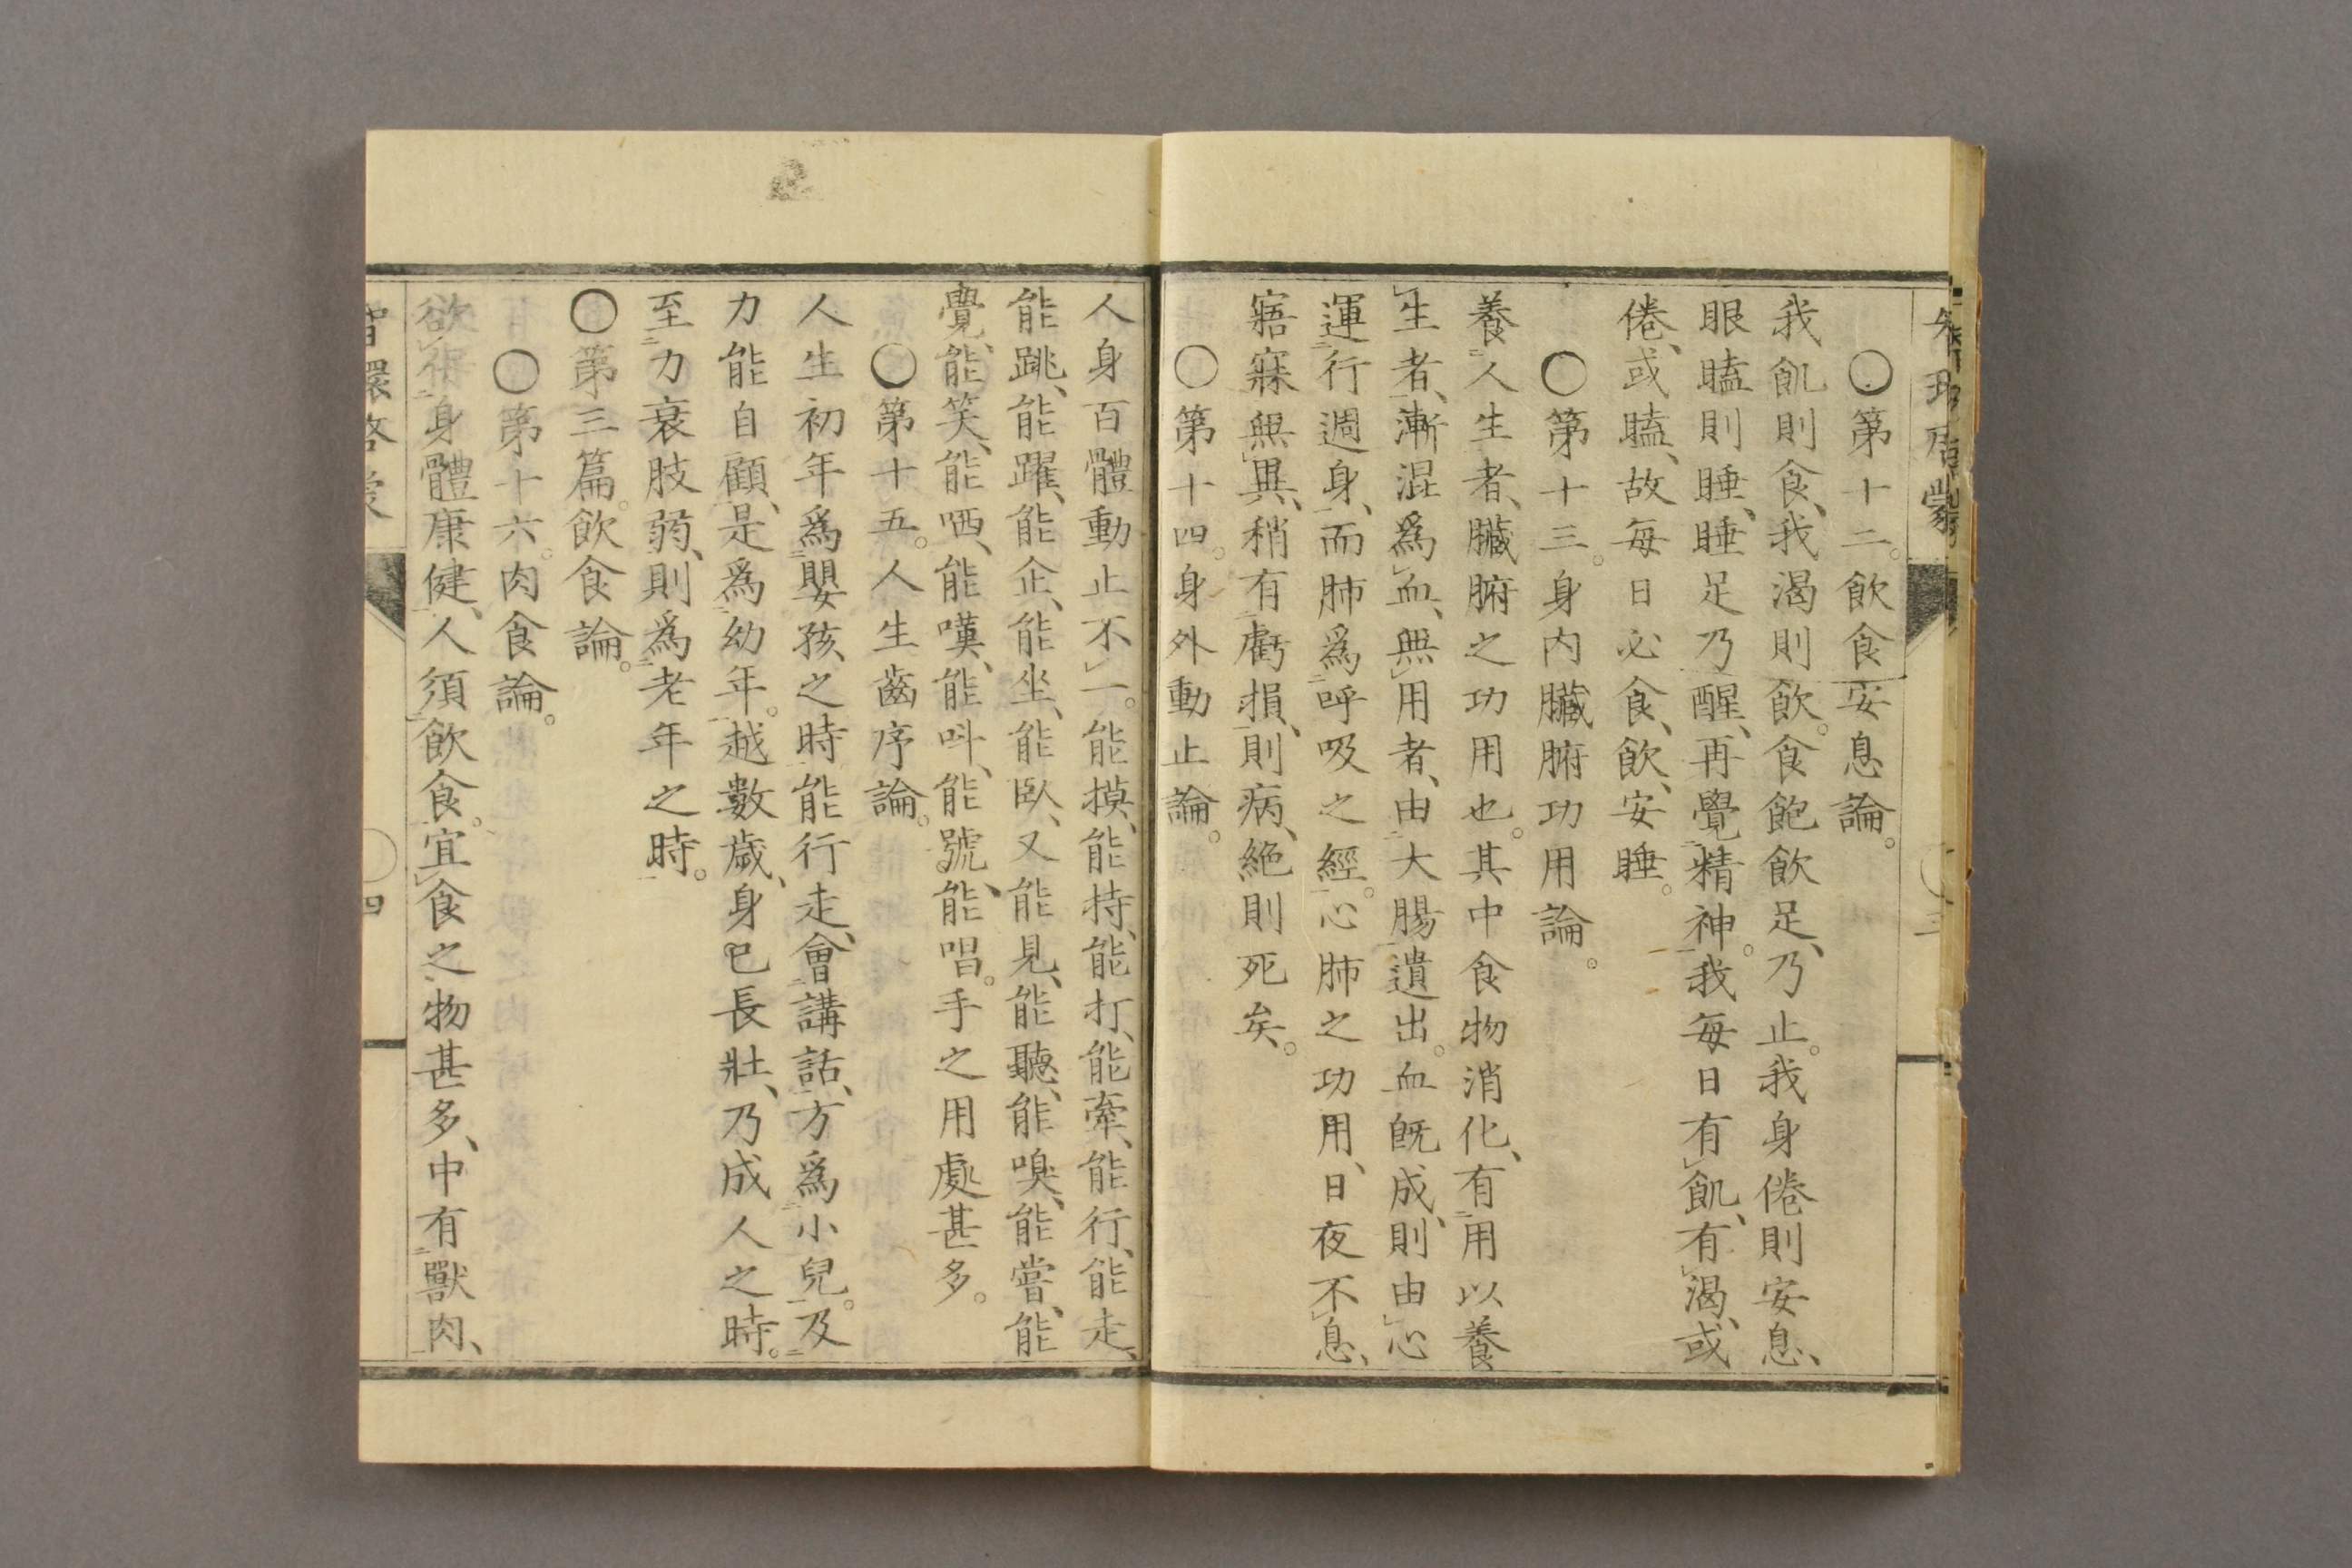 〇第十二。飲食安息論。
我飢則食、我渴則飲。食飽飲足、乃止。我身倦則安息、
眼瞌則睡、睡足乃醒、再覺精神。我每日有飢、有渴、或
倦、或瞌、故每日必食、飲、安睡。
〇第十三。身内臟腑功用論。
養人生者、臟腑之功用也。其中食物消化、有用以養
生者、漸混爲血、無用者、由大腸遺出。血既成、則由心
運行週身、而肺爲呼吸之經。心肺之功用、日夜不息、
寤寐無異、稍有虧損、則病、絶則死矣。
〇第十四。身外動止論。
三
人身百體動止不一。能摸、能持、能打、能牽、能行、能走、
能跳、能躍、能企、能坐、能臥、又能見、能聽、能嗅、能嘗、能
覺、能笑、能哂、能嘆、能呌、能號、能唱。手之用處甚多。
〇第十五。人生齒序論。
人生初年爲嬰孩之時、能行走、會講話、方爲小兒。及
力能自顧、是爲幼年。越數歲、身已長壯、乃成人之時。
至力衰肢弱、則爲老年之時。
〇第三篇。飲食論。
〇第十六。肉食論。
欲保身體康健、人須飲食。宜食之物甚多、中有獸肉、
智環啓蒙
四